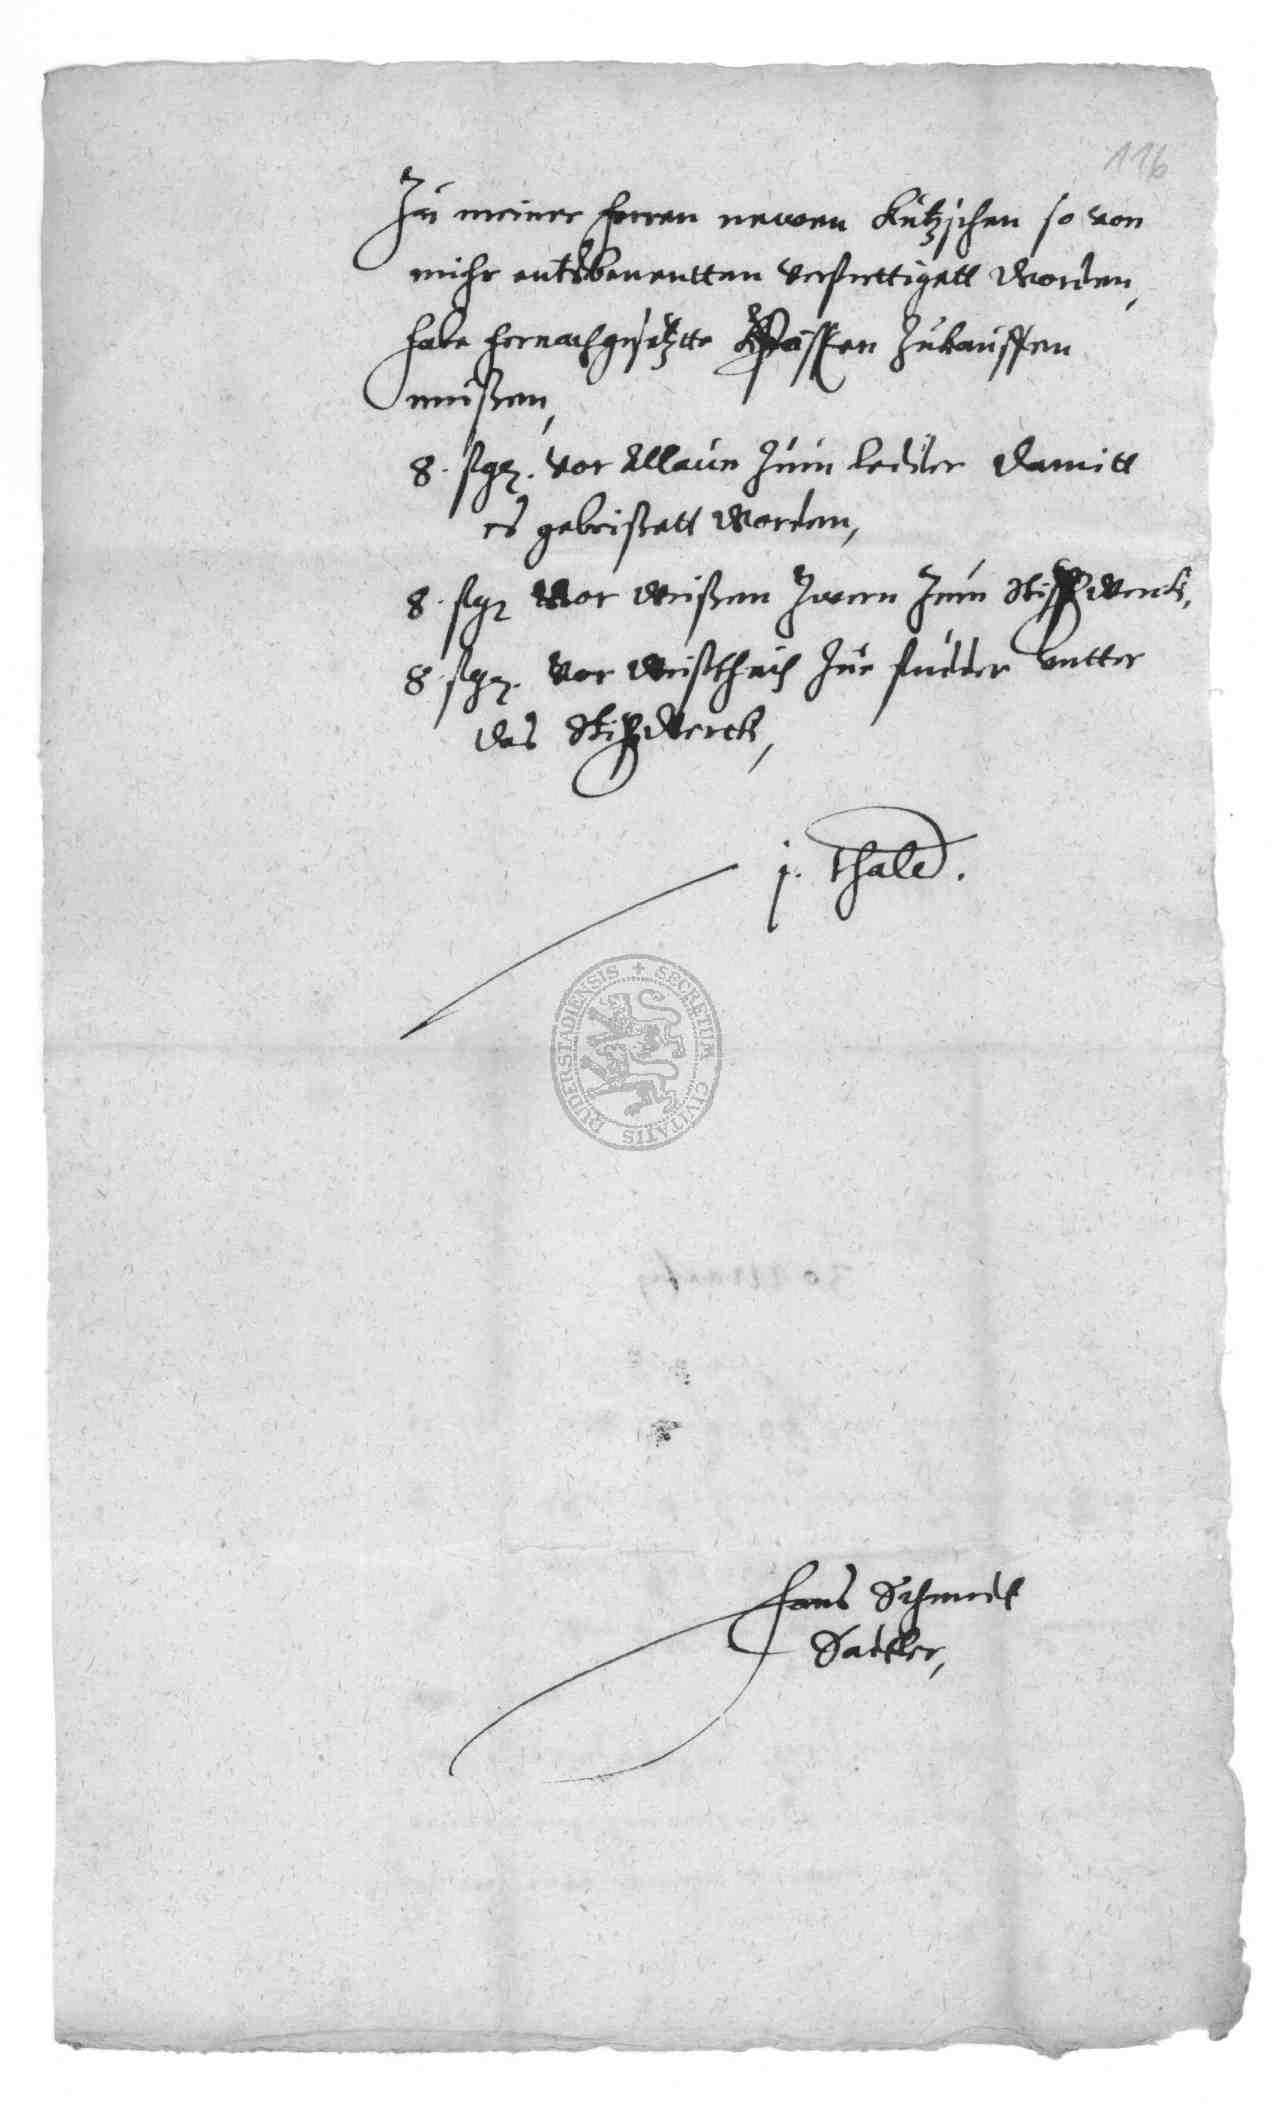 116
Zu meiner herren newen Kutzschen so von
mihr entsbenentten verferttigett worden,
habe hernachgesetzte zukauffen
mußen,
8. ßgr. vor Allaun zum ledder damitt
es gebeißett worden,
8. ßgr vor weißen zwern zum Stichwerck,
8. ßgr. vor weißthuch zur fudder untter
das Stichwerck,
j. thaler.
SECRETUM CIVITATIS RUDERSTADIENSIS
Hans Schmidt
Sattler,